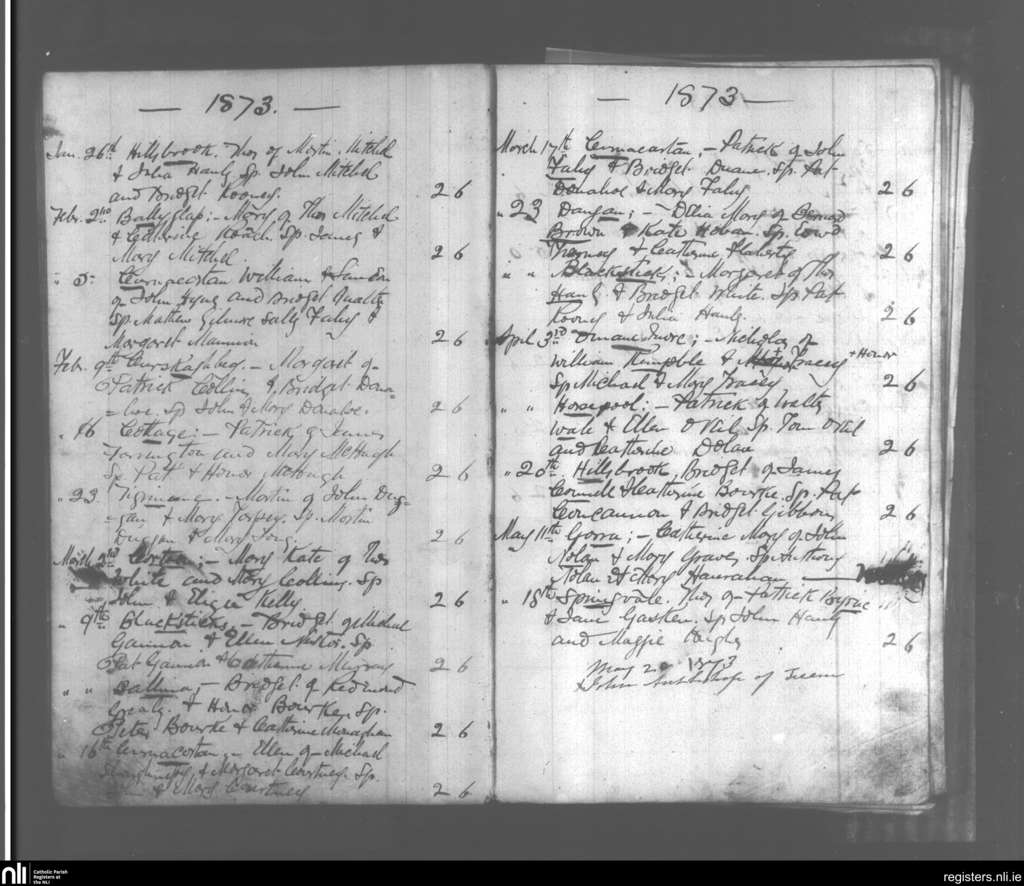 — 1873. —
Jan. 26th Hillsbrook. Thos of Martin Mitchel
& Julia Hanly Sp. John Mitchel
and Bridget Rooney. 2 6
Febr. 2nd Ballyglas; — Mary of Thos Mitchel
& Catherine Roach. Sp. James &
Mary Mitchell. 2 6
" 5th William &
of John and Bridget
Sp. Mathew Gilmore Sally Fahy &
Margaret Mannion 2 6
Febr. 9th — Margaret of
Patrick Collins & Bridget Dona=
=hoe. Sp John & Mary Donahoe. 2 6
" 16 Cottage; — Patrick of James
Farrington and Mary McHugh
Sp. Pat & Honor McHugh 2 6
" 23 — Martin of John Dug=
=gan & Mary Sp. Martin
Duggan & Mary 2 6
March 2nd — Mary Kate of Thos
White and Mary Collins. Sp
John & Eliza Kelly 2 6
" 9th Blacksticks, — Bridget of Michael
Gannon & Ellen Sp.
Pat Gannon & Catherine Murray 2 6
" " — Bridget of Redmond
& Honor Bourke, Sp.
Peter Bourke & Catherine Monaghan 2 6
" 16th — Ellen of Michael
& Margaret Courtney. Sp.
& Mary Courtney 2 6
— 1873 —
March 17th — Patrick of John
Fahy & Bridget Duane. Sp. Pat
Donahoe & Mary Fahy 2 6
" 23 Dangan; — Delia Mary of Bernard
Brown & Kate Hoban. Sp. Edwd
Tierney & Catherine Flaherty 2 6
" " Blacksticks; — Margaret of Thos
Hanly & Bridget White. Sp. Pat
Rooney & Julia Hanly. 2 6
April 3rd — Nicholas of
William & Tracey + Honor
Sp Michael & Mary Tracey 2 6
" " Horsepool; — Patrick of Walter
& Ellen O'Neil Sp. Tom O'Neil
and Catherine Dolan 2 6
" 20th Hillsbrook, Bridget of James
Connell & Catherine Bourke. Sp. Pat
Concannon & Bridget Gibbons 2 6
May 11th Gorra; — Catherine Mary of John
Nolan & Mary Graves Sp. Anthony
Nolan & Mary Hanrahan —
" 18th Springvale. Thos of Patrick Byrne
& Jane Gasken. Sp John Hanly
and Maggie 2 6
May 22 1873
+ John Archbishop of Tuam
nli
Catholic Parish
Registers at
the NLI
registers.nli.ie